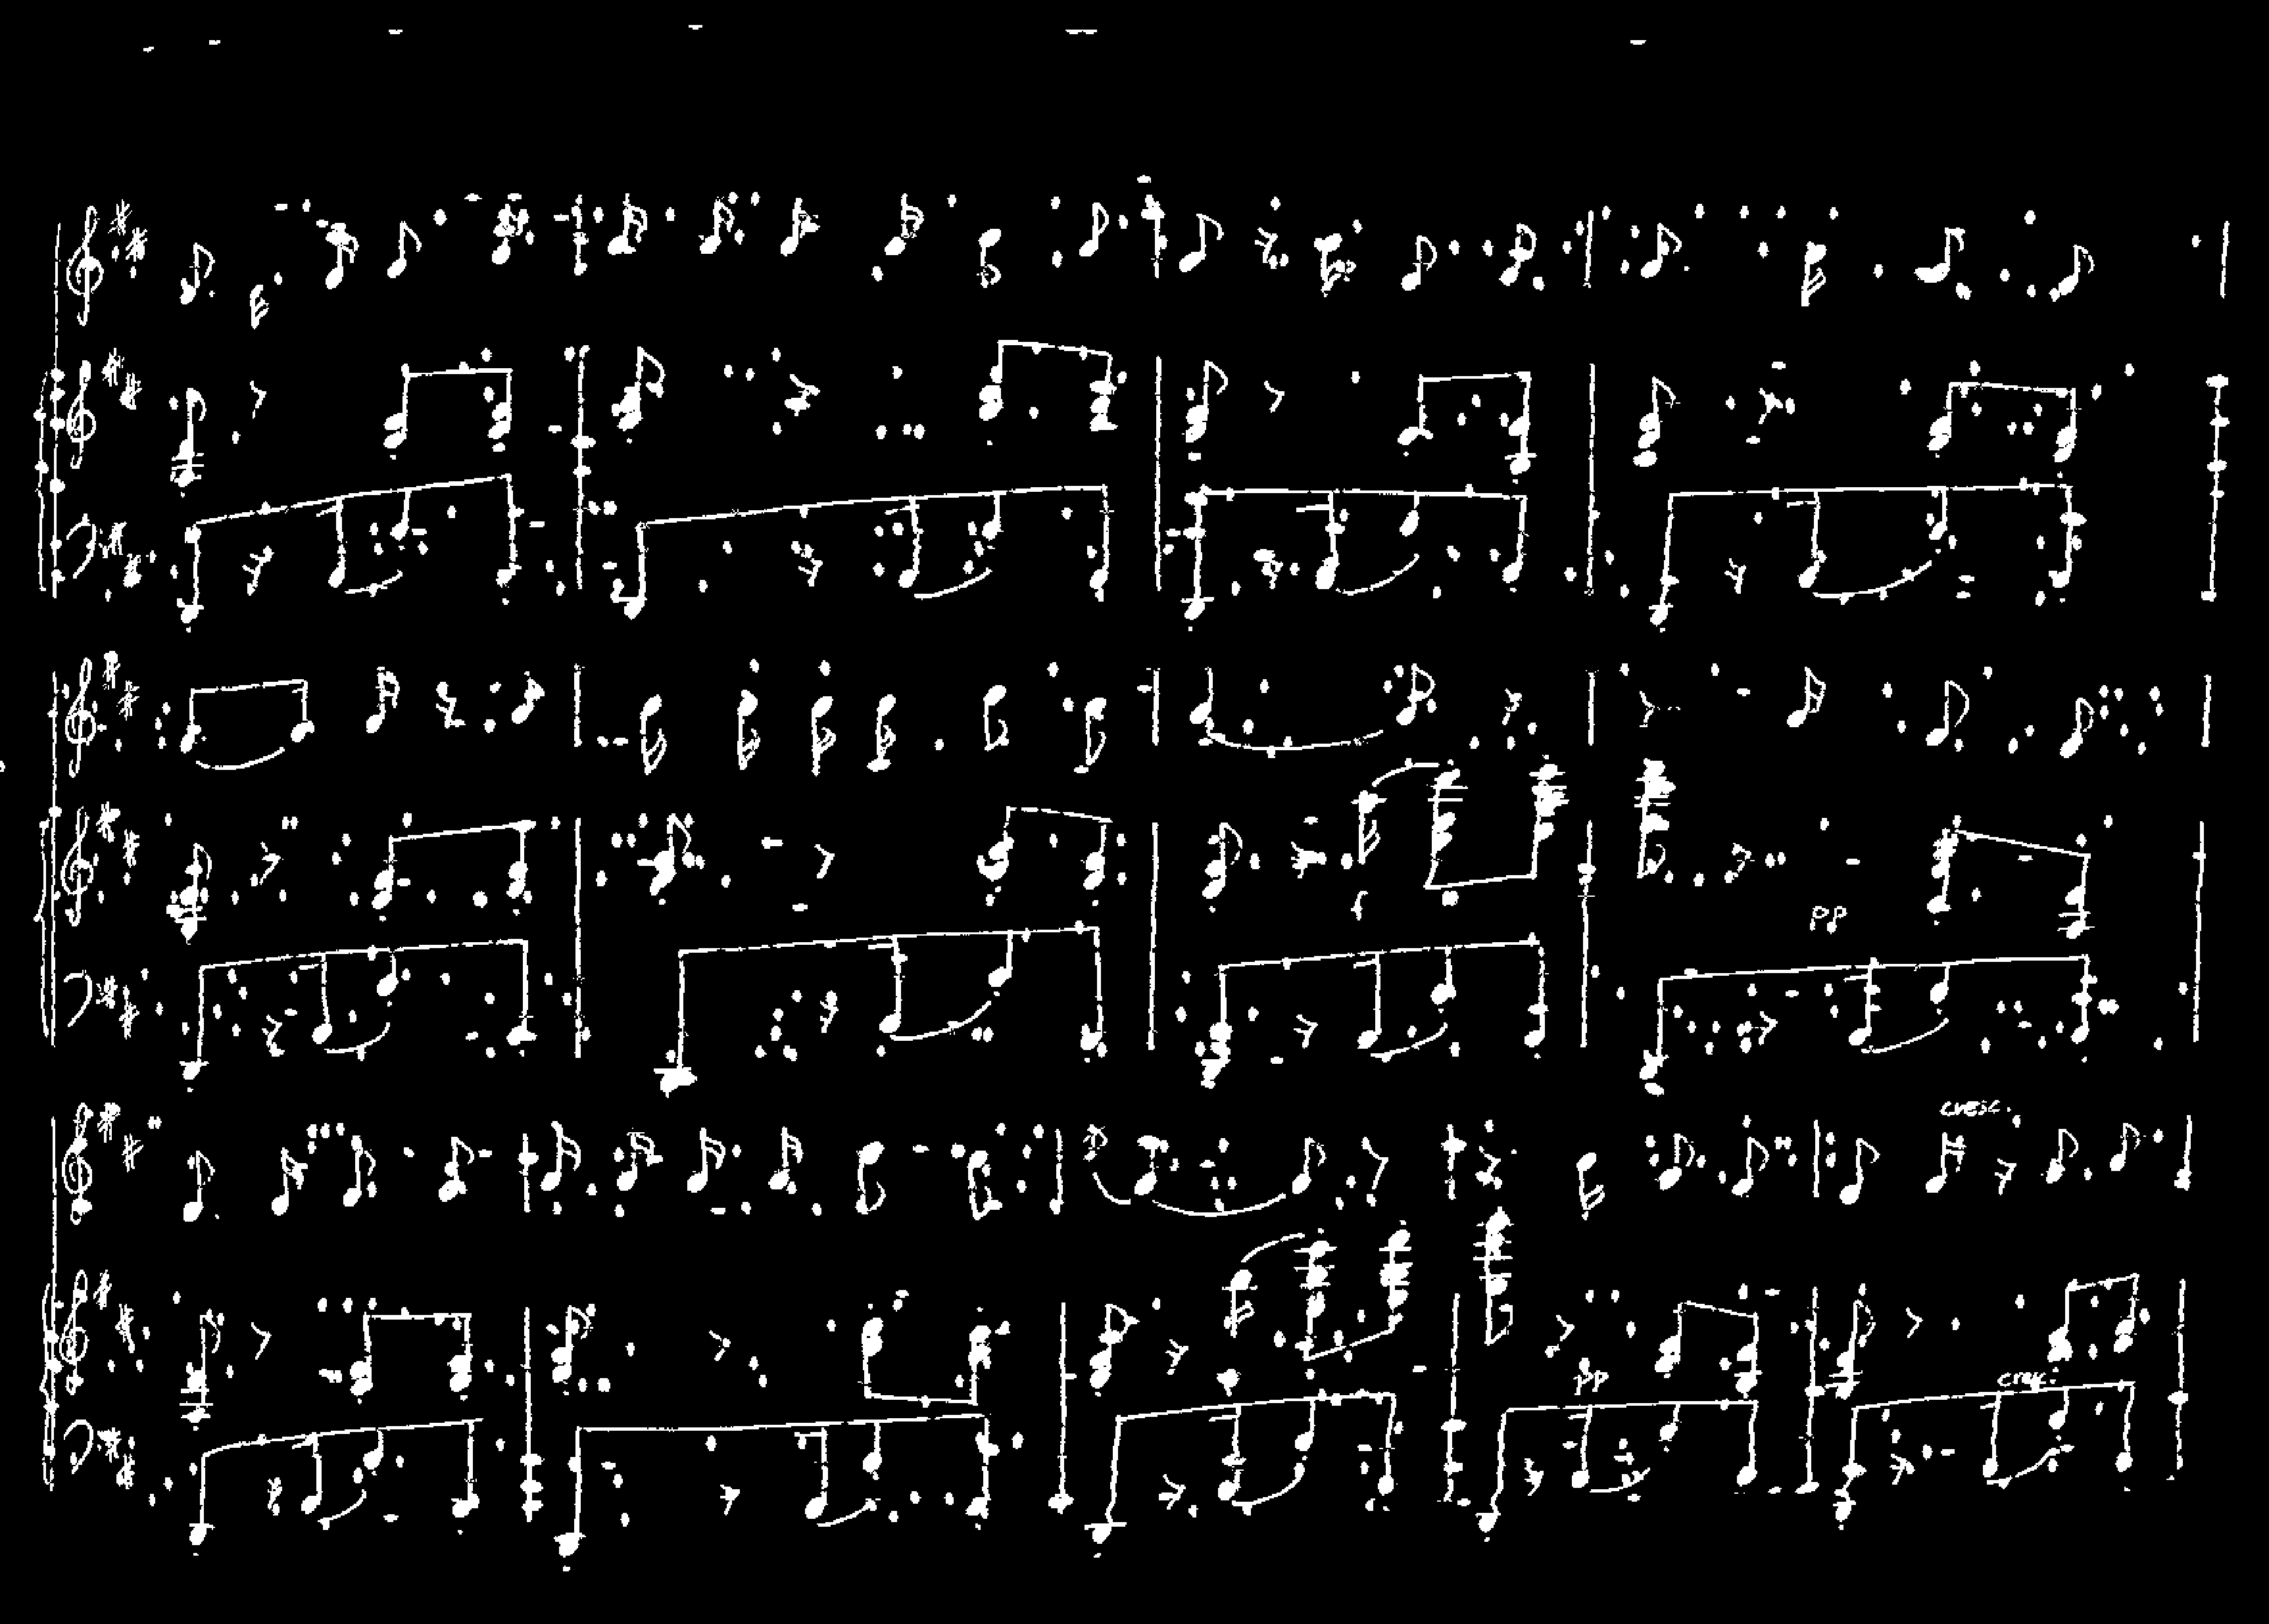 f
pp
cresc.
pp
cresc.